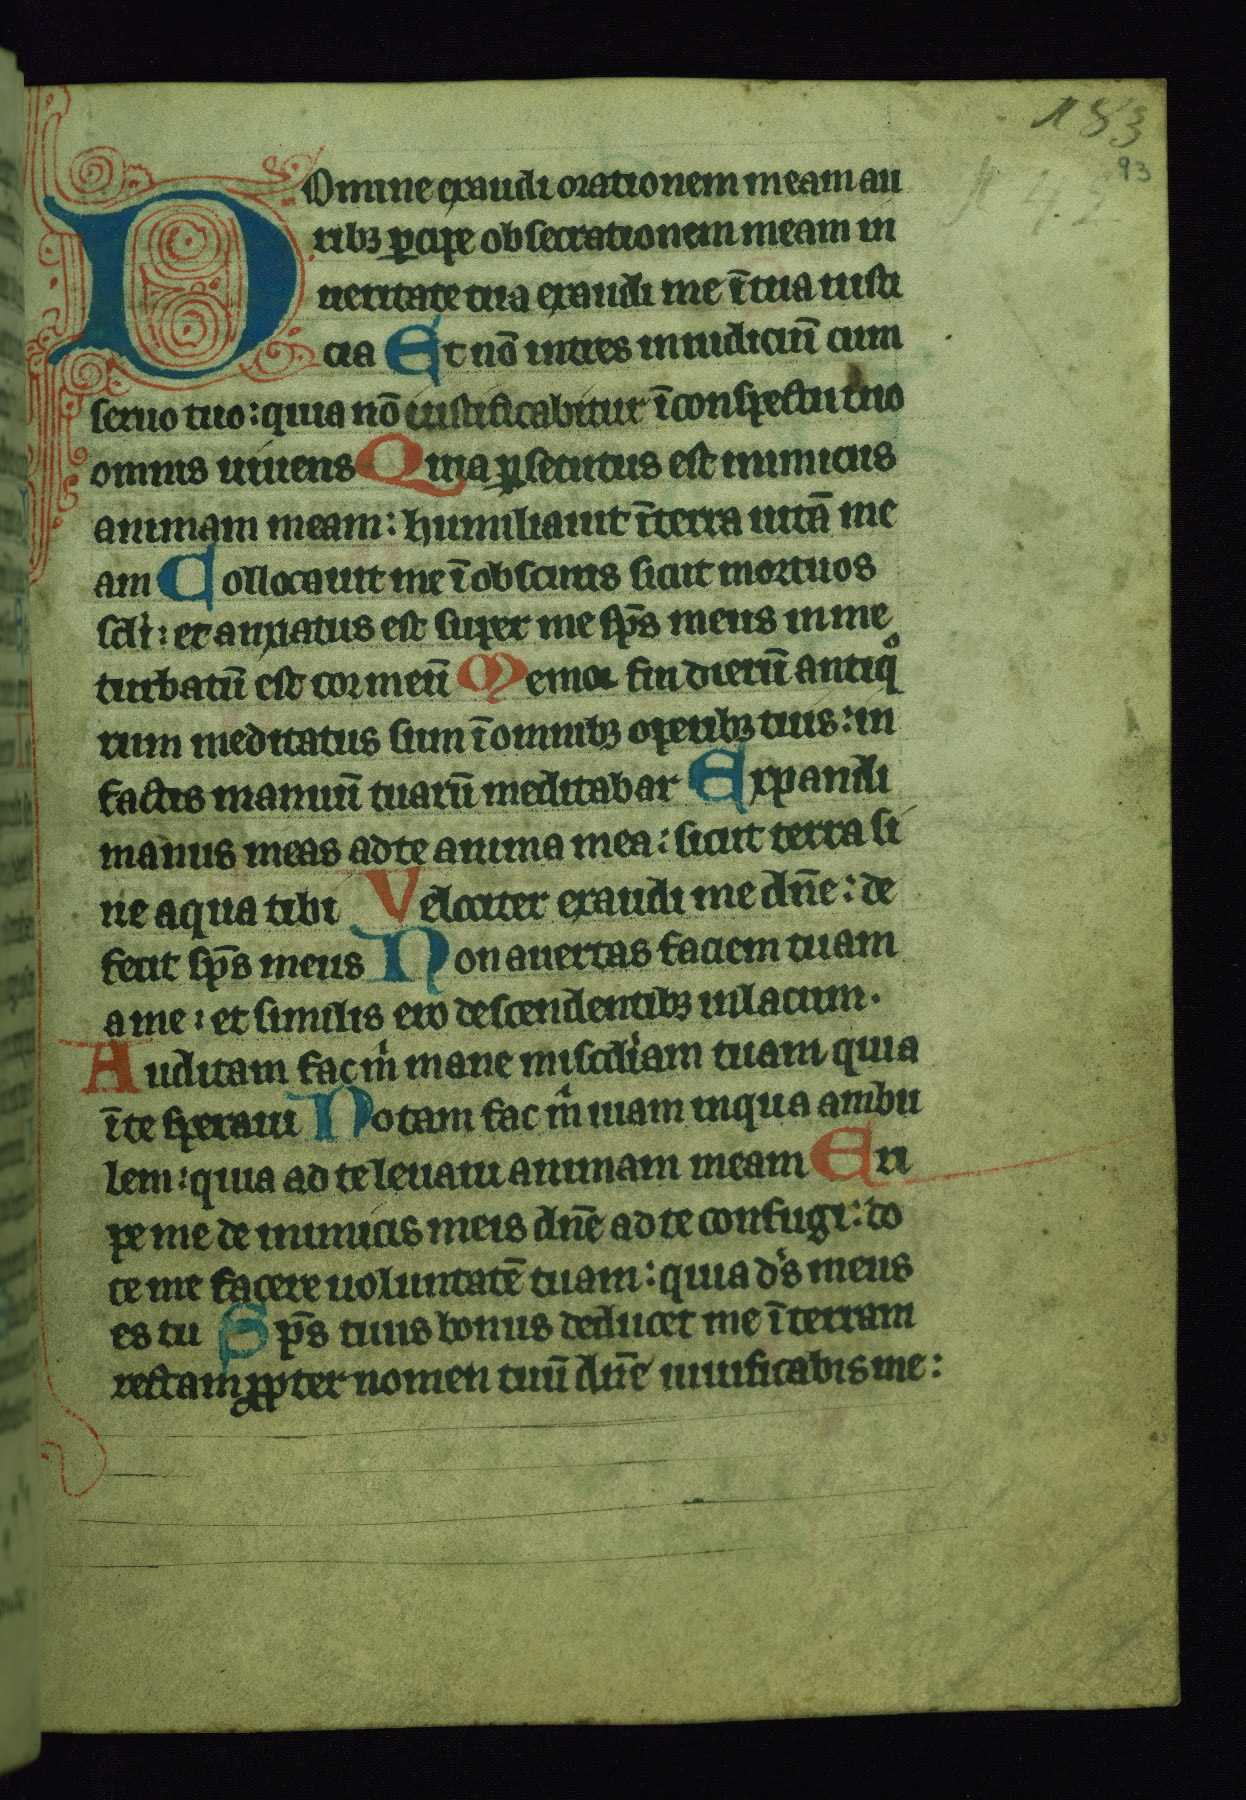 183
93
142
Domine exaudi orationem meam au
ribꝫ ꝑcipe obsecrationem meam in
ueritate tua exaudi me ī tua iusti
cia Et nō intres in iudiciū cum
seruo tuo : quia nō iustificabitur ī conspectu tuo
omnis uiuens Quia ꝑsecutus est inimicus
animam meam : humiliauit ī terra uitā me
am Collocauit me ī obscuris sicut mortuos
scl̄i : et anxiatus est super me sp̄s meus in me
turbatū est cor meū Memor fui dierū antiqͦ
rum meditatus sum ī omnibꝫ operibꝫ tuis : in
factis manuū tuarū meditabar Expandi
manus meas ad te anima mea : sicut terra si
ne aqua tibi Velociter exaudi me dn̄e : de
fecit sp̄s meus Non auertas faciem tuam
a me : et similis ero descendentibꝫ in lacum .
Auditam fac m̍ mane misc̄diam tuam quia
ī te speraui Notam fac m̍ uiam in qua ambu
lem : quia ad te leuaui animam meam Eri
pe me de inimicis meis dn̄e ad te confugi : do
ce me facere uoluntatē tuam : quia ds̄ meus
es tu Sp̄s tuus bonus deducet me ī terram
rectam ꝓpter nomen tuū dn̄e uiuificabis me :